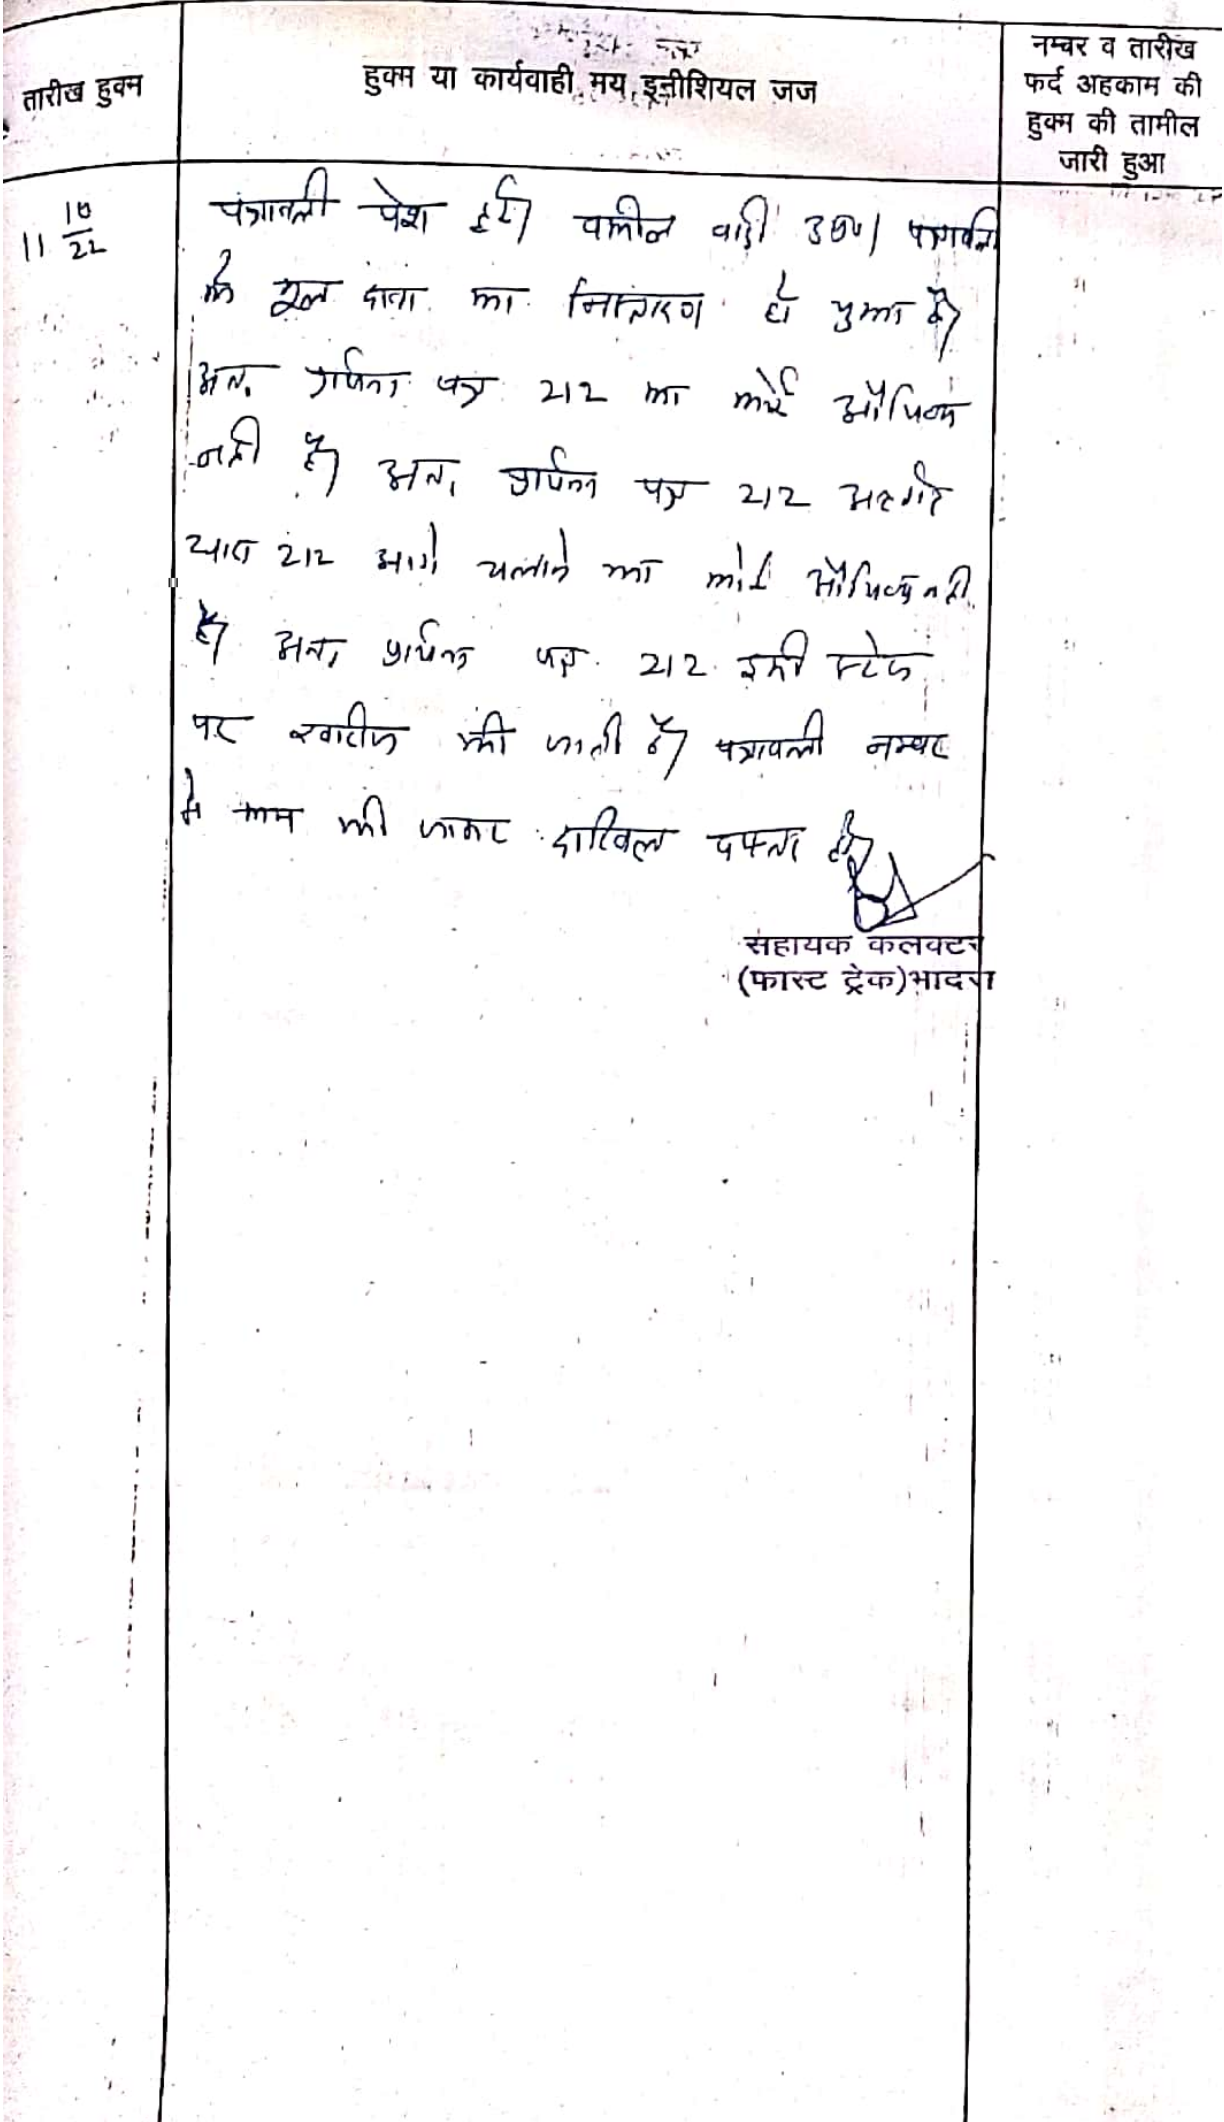 तारीख हुक्म
हुक्म या कार्यवाही मय इनीशियल जज
नम्बर व तारीख
फर्द अहकाम की
हुक्म की तामील
जारी हुआ
11 10/22
पत्रावली पेश हुई। वकील वादी उप०। पत्रावली
के मूल दावा का निस्तारण हो चुका है।
अतः प्रार्थना पत्र 212 का कोई औचित्य
नही है। अतः प्रार्थना पत्र 212 अन्तर्गत
धारा 212 आगे चलाने का कोई औचित्य नही
है। अतः प्रार्थना पत्र 212 इसी स्टेज
पर खारीज की जाती है। पत्रावली नम्बर
से कम की जाकर दाखिल दफ्तर हो।
सहायक कलक्टर
(फास्ट ट्रेक) भादरा